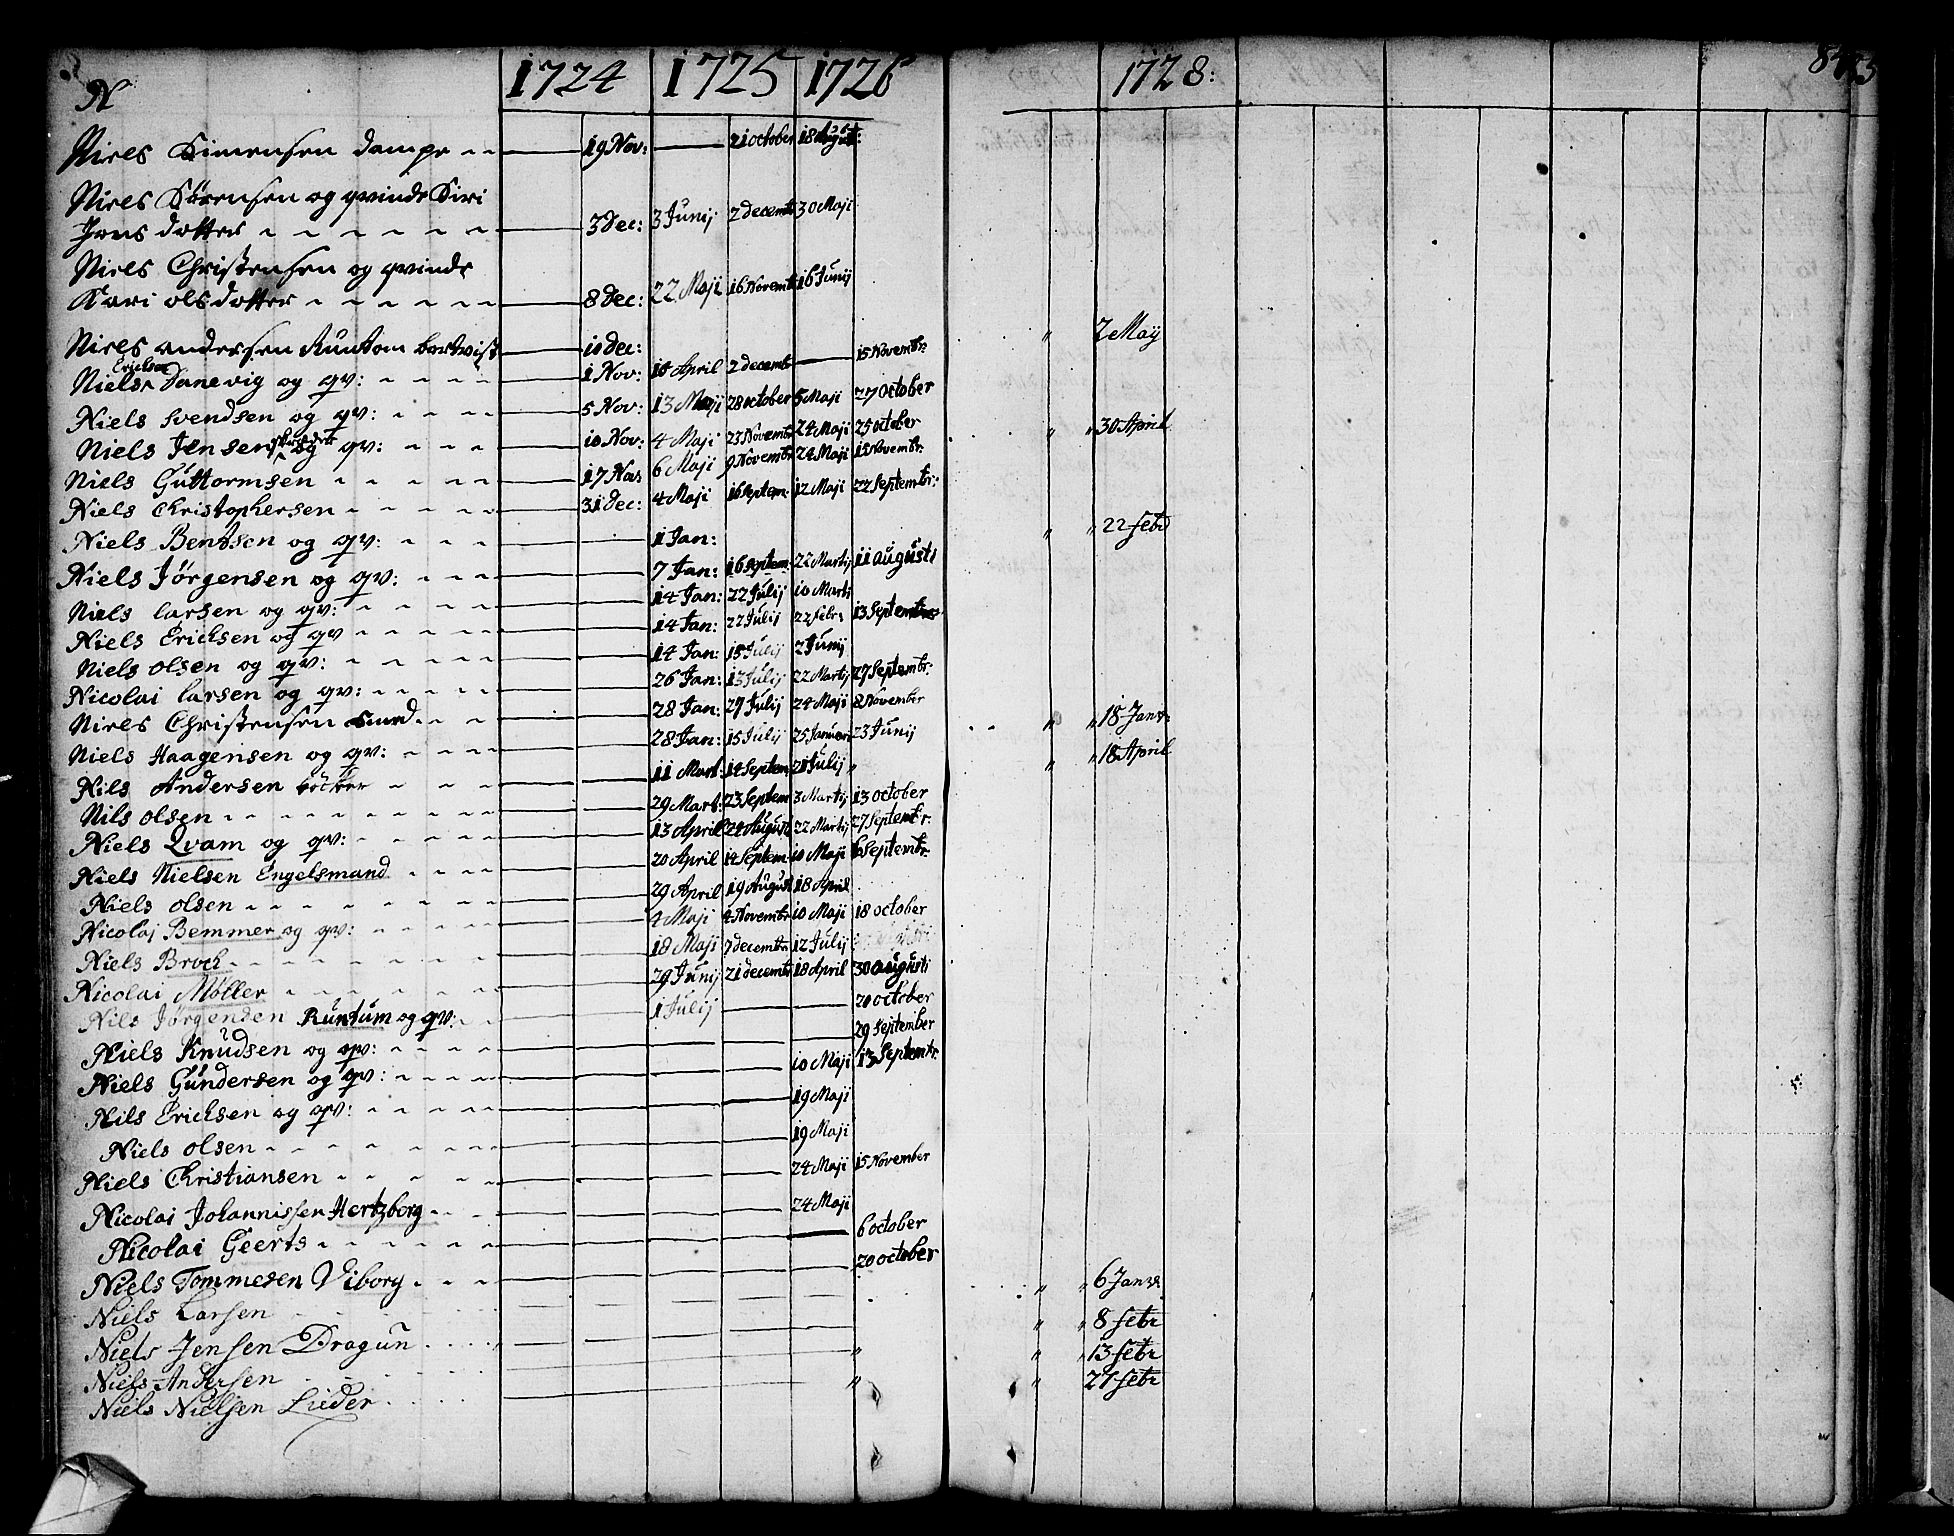 N 1724 1725 1726 1728:
Niels Simensen Dampe 19 Nov: 21 october 18 August:
Niels Sörensen og qvinde Siri
Jens dotter 3 dec: 3 Junij 2 decemb 30 Maji
Niels Christensen og qvinde
Kari olsdotter 8 dec: 22 Maji 16 Novemb 16 Junij
Niels andersen Runtom 10 dec: 15 Novembr: " 2 May
Niels Ericksen Danevig og qv: 1 Nov: 18 April 2 decemb
Niels Svendsen og qv: 5 Nov: 13 Maji 28 october 5 Maji 27 October
Niels Jensen og qv: 10 Nov: 4 Maji 23 Novembr 24 Maji 25 october " " 30 April
Niels Guttormsen 17 Nov 6 Maji 9 Novembr 24 Maji 15 Novembr:
Niels Christophersen 31 dec: 4 Maji 16 Septem: 12 Maji 22 Septembr:
Niels Bentsen og qv: 1 Jan: " " 22 febr
Niels Jörgensen og qv: 7 Jan: 16 Septem: 22 Martij 11 augusti
Niels larsen og qv: 14 Jan: 22 Julij 10 Marti
Niels Ericksen og qv 14 Jan: 22 Julij 22 Febr 13 Septembr
Niels olsen og qv: 14 Jan: 15 Julij 2 Junij
Nicolai larsen og qv: 26 Jan: 13 Julij 22 Martij 27 Septembr:
Niels Christensen smed 28 Jan: 29 Julij 24 Maji 8 November " " 18 Janr:
Niels Haagensen og qv: 28 Jan: 15 Julij 25 Januari 23 Junij " " 18 April
Nils Andersen böcker 11 Mart: 14 Septem 21 Julij "
Nils olsen 29 Mart: 23 Septem 3 Martij 13 october
Niels Qvam og qv: 13 April 24 August 22 Martij 27 Septembr.
Niels Nielsen Engelsmand 20 April 14 Septem 10 Maji 6 Septembr:
Niels olsen 29 April 19 August 18 April
Nicolaj Bemmer og qv: 4 Maji 4 Novembr 10 Maji 18 october
Niels Brock 18 Maji 7 decembr 12 Julij
Nicolai Möller 29 Junij 21 decembr 18 April 30 augusti
Nils Jörgenden Runtum og qv: 1 Julij 20 october
Niels Knudsen og qv: 29 September
Niels Gundersen og qv: 10 Maji 13 Septembr:
Nils Ericksen og qv: 19 Maji
Niels olsen 19 Maji
Niels Christiansen 24 Maji 15 November
Nicolai Johannissen Hertzborg 24 Maji
Nicolai Geerts 6 october
Niels Tommesen Viborg 20 october
Niels Larsen " " 6 Janr
Niels Jensen Dragun " " 8 febr
Niels Andersen " " " 13 febr
Niels Nielsen Lieder " " 27 febr